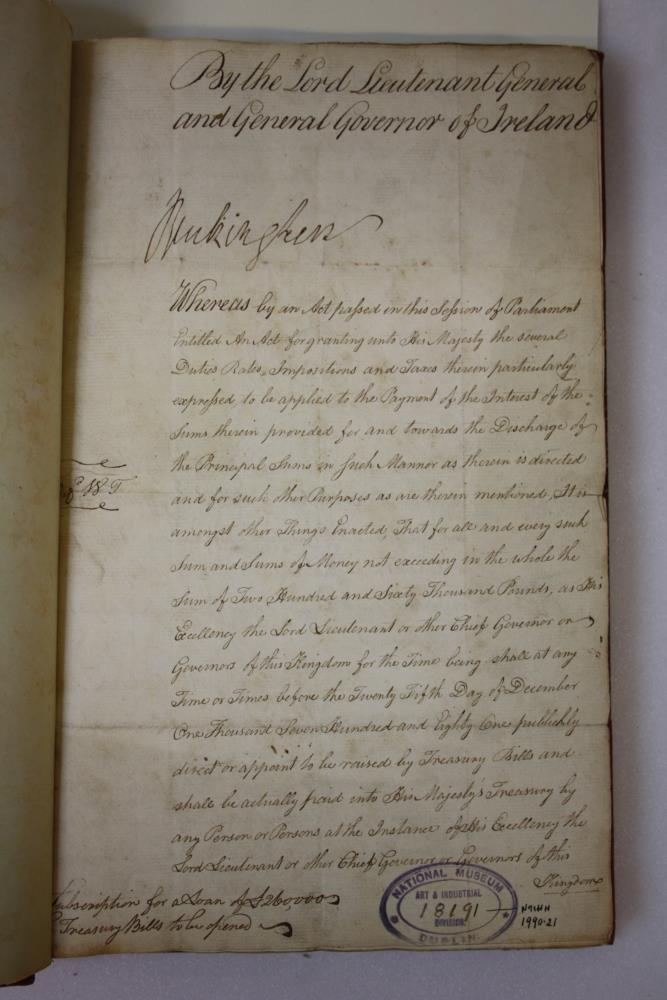 By the Lord Lieutenant General
and General Governor of Ireland
Buckingham
Whereas by an Act passed in this Session of Parliament
Entitled An Act for granting unto His Majesty the several
Duties Rates, Impositions and Taxes therein particularly
expressed, to be applied to the Payment of the Interest of the
Sums therein provided for and towards the Discharge of
the Principal Sums in such Manner as therein is directed
and for such other Purposes as are therein mentioned, It is
amongst other Things Enacted, That for all and every such
Sum and Sums of Money not exceeding in the whole the
Sum of Two Hundred and Sixty Thousand Pounds, as His
Excellency the Lord Lieutenant or other Chief Governor or
Governors of this Kingdom for the Time being shall at any
Time or Times before the Twenty Fifth Day of December
One Thousand Seven Hundred and Eighty One publickly
direct or appoint to be raised by Treasury Bills and
shall be actually paid into His Majesty's Treasury by
any Person or Persons at the Instance of His Excellency the
Lord Lieutenant or other Chief Governor or Governors of this
Kingdom
Subscription for a Loan of £260,000
Treasury Bills to be opened
NATIONAL MUSEUM
ART & INDUSTRIAL
18191
DIVISION.
DUBLIN.
1990-21